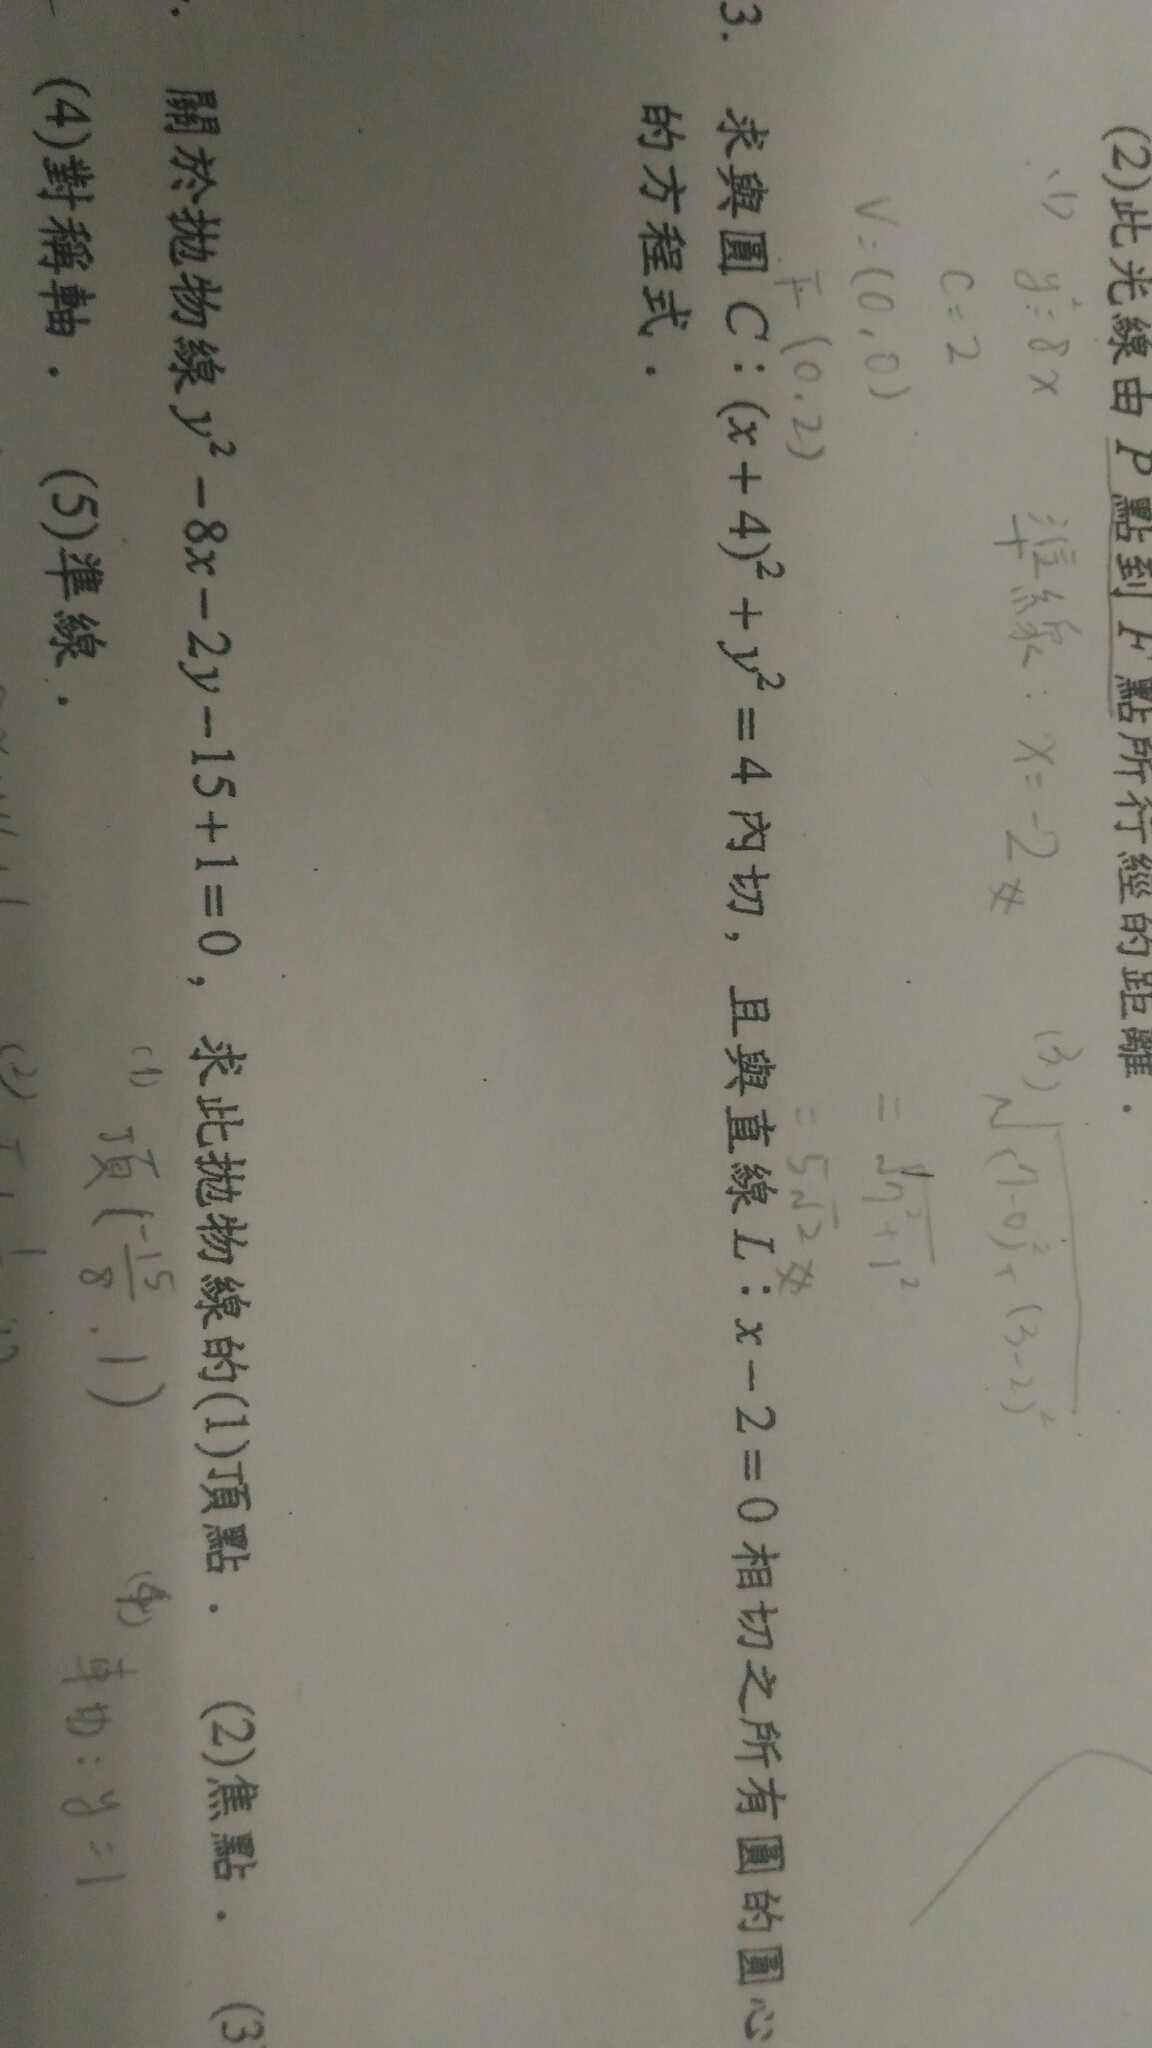 (2)此光線由 P 點到 F 點所行經的距離．
(1) y²=8x 準線：x=-2
c=2
V=(0,0)
F(0,2)
(3) √(7-0)²+(3-2)²
=√7²+1²
=5√2
3. 求與圓 C：(x+4)²+y²=4 內切，且與直線 L：x-2=0 相切之所有圓的圓心
的方程式．
關於拋物線 y²-8x-2y-15+1=0，求此拋物線的(1)頂點． (2)焦點． (3
(4)對稱軸． (5)準線．
(1) 頂(-15/8, 1)
(4) 軸：y=1
(2)